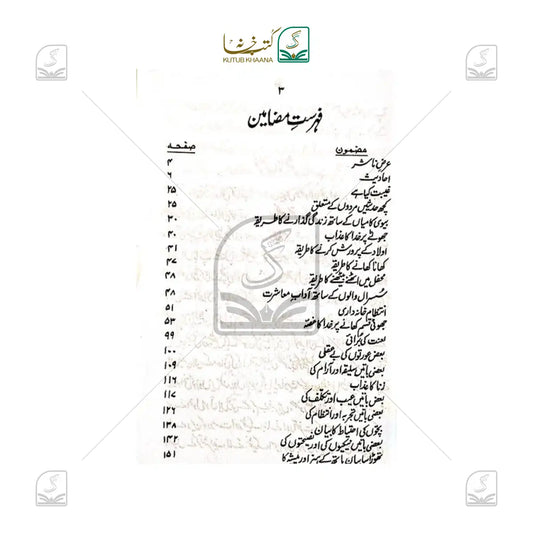 کتب خانہ
KUTUB KHAANA
۳
فہرستِ مضامین
مضمون صفحہ
عرضِ ناشر ۴
احادیث ۶
غیبت کیا ہے ۲۵
کچھ حدیثیں مردوں کے متعلق ۲۵
بیوی کا میاں کے ساتھ زندگی گذارنے کا طریقہ ۳۰
جھوٹے پر خدا کا عذاب ۴۰
اولاد کے پرورش کرنے کا طریقہ ۴۱
کھانا کھانے کا طریقہ ۴۷
محفل میں اٹھنے بیٹھنے کا طریقہ ۴۸
سسرال والوں کے ساتھ آدابِ معاشرت ۴۸
انتظام خانہ داری ۵۱
جھوٹی قسم کھانے پر خدا کا غصّہ ۵۳
لعنت کی برائی ۹۹
بعض عورتوں کی بے عقلی ۱۰۰
بعض باتیں سلیقہ اور آرام کی ۱۰۹
زنا کا عذاب ۱۱۶
بعض باتیں عیب اور تکلّف کی ۱۱۷
بعض باتیں تجربہ اور انتظام کی ۱۲۶
بچّوں کی احتیاط کا بیان ۱۳۸
بعض باتیں نیکیوں کی اور نصیحتوں کی ۱۴۲
تھوڑا سا بیان ہاتھ کے ہنر اور پیشہ کا ۱۵۱